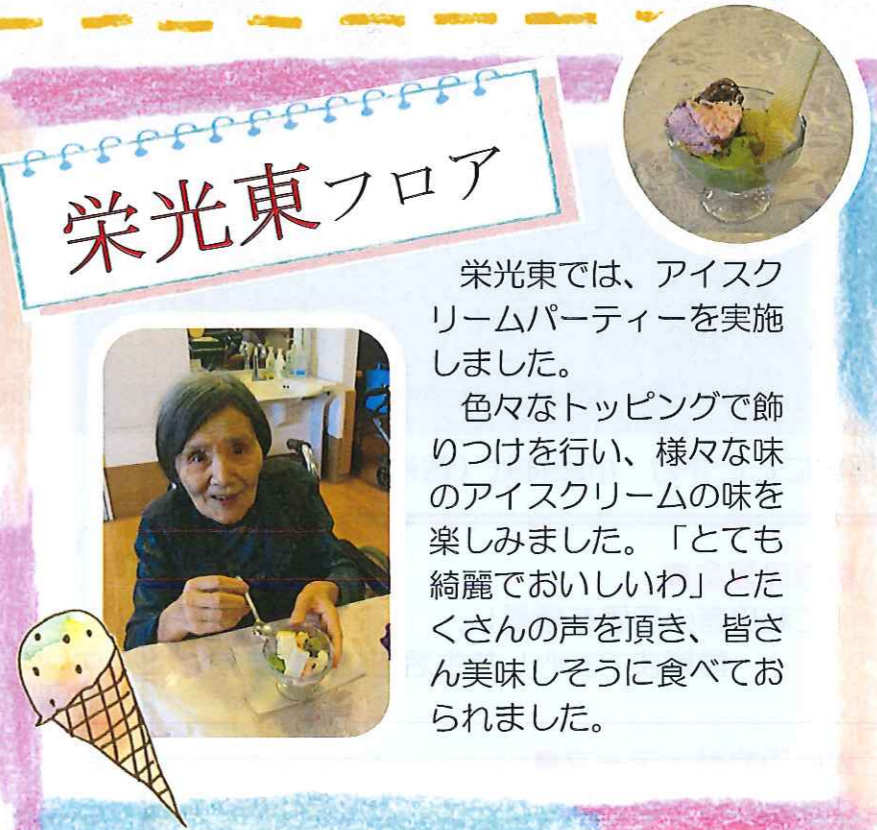 栄光東フロア
　栄光東では、アイスク
リームパーティーを実施
しました。
　色々なトッピングで飾
りつけを行い、様々な味
のアイスクリームの味を
楽しみました。「とても
綺麗でおいしいわ」とた
くさんの声を頂き、皆さ
ん美味しそうに食べてお
られました。